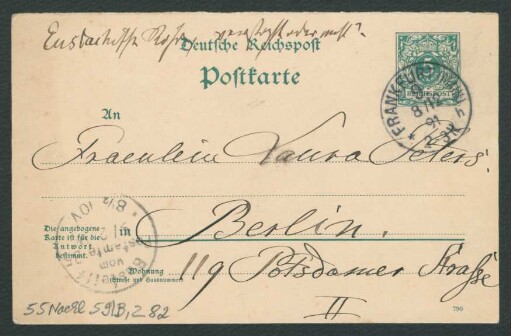 Eustachische Röhre, verstopft oder nicht?
Deutsche Reichspost
Postkarte
5
REICHSPOST
FRANKFURT (MAIN)
91
2-3N
An
Fraeulein Laura Peters.
Die angebogene
Karte ist für die
Antwort
bestimmt.
in Berlin.
Wohnung
(Straße und Hausnummer)
119 Potsdamer Strasse
II
vom
8 1/2
55 Nachl 59/B, 2 82
790